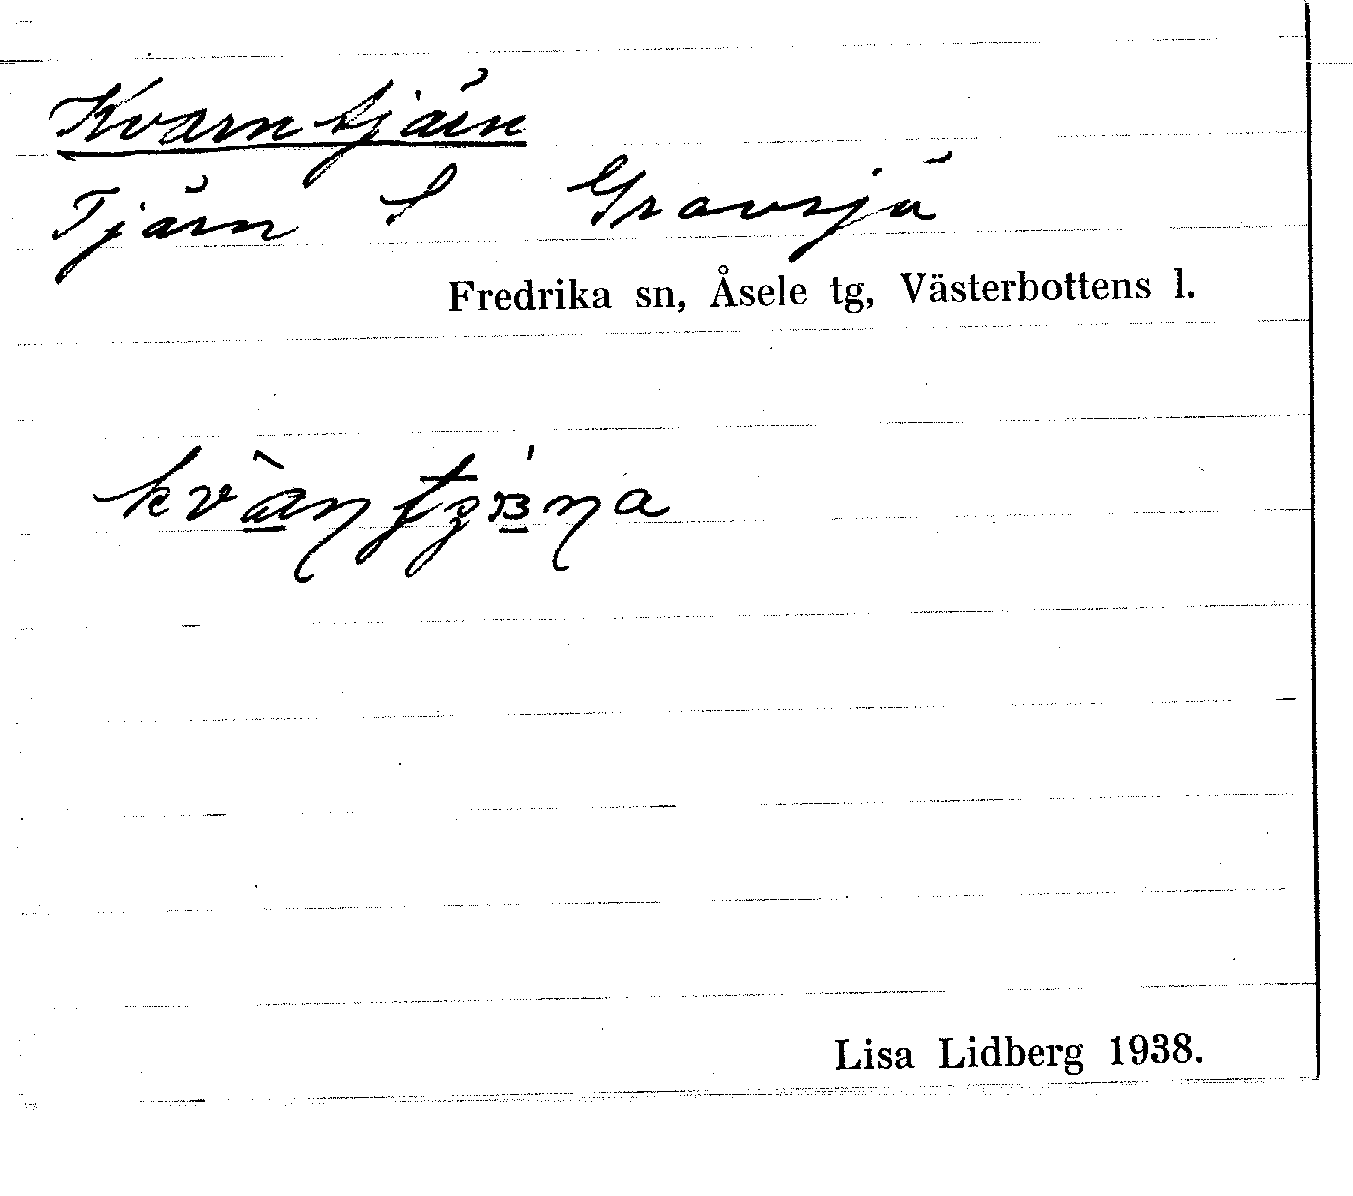 Kvarntjärn
Tjärn S Gravsjö
Fredrika sn, Åsele tg, Västerbottens l.
Lisa Lidberg 1938.